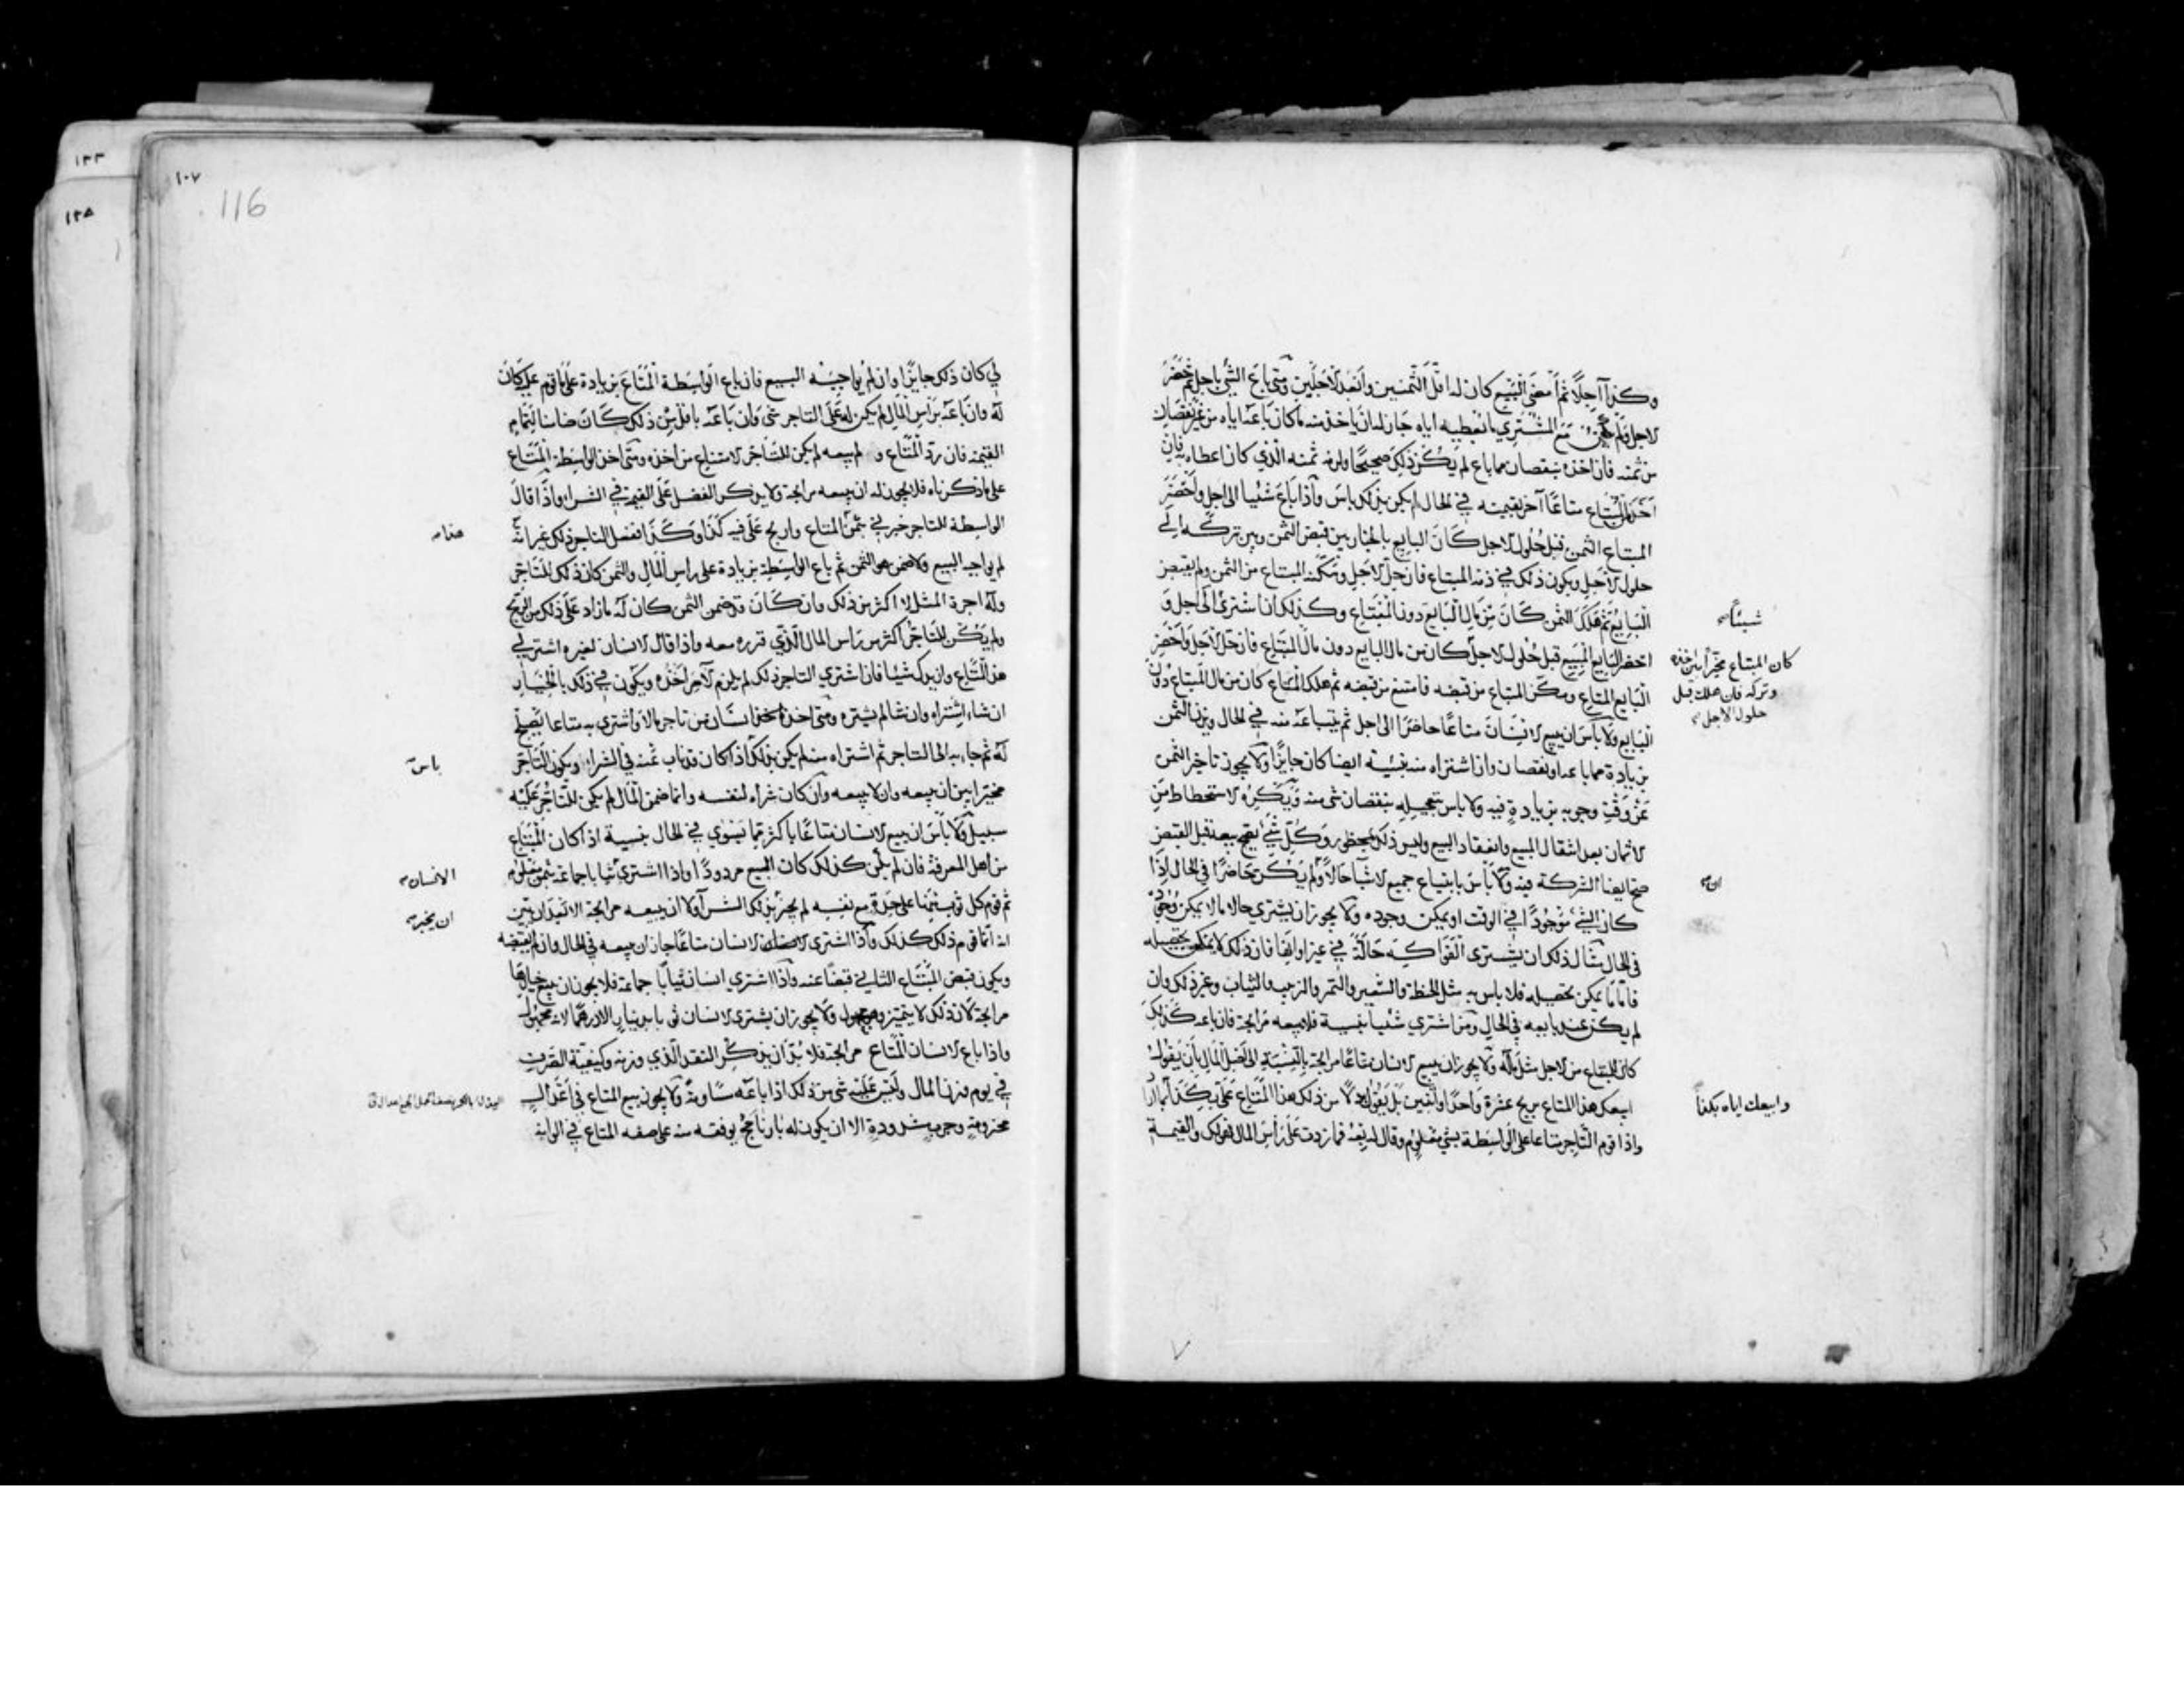 وكذا آجلا ثم امضى البيع كان له اقل الثمنين وابعد الاجلين ومتى باع الشئ باجل ثم حضر
الاجل ولم يكن مع المشتري ما يعطيه اياه جاز له ان ياخذ منه ما كان باعه اياه من غير نقصان
من ثمنه فان اخذه بنقصان مما باع لم يكن ذلك صحيحا ولزمه ثمنه الذي كان اعطاه به فان
اخذ من المبتاع متاعا آخر بقيمته في الحال لم يكن بذلك باس واذا باع شئيا الى اجل واحضر
المبتاع الثمن قبل حلول الاجل كان البايع بالخيار بين قبض الثمن وبين تركه الى
حلول الاجل ويكون ذلك في ذمة المبتاع فان حل الاجل ومكنه المبتاع من الثمن ولم يقبض
البايع ثم هلك الثمن كان من مال البايع دون المبتاع وكذلك ان اشترى الى اجل و
شيئا
احضر البايع المبيع قبل حلول الاجل كان من مال البايع دون مال المبتاع فان حل الاجل واحضر
كان المبتاع مخيرا بين اخذه
وتركه فان هلك قبل
حلول الاجل
البايع المتاع ومكن المبتاع من قبضه فامتنع من قبضه ثم هلك المتاع كان من مال المبتاع دون
البايع ولا باس ان يبيع الانسان متاعا حاضرا الى اجل ثم يبتاعه منه في الحال ويزن الثمن
بزيادة مما باعه او نقصان وان اشتراه منه بنسية ايضا كان جايزا ولا يجوز تاخير الثمن
عن وقت وجوبه بزيادة فيه ولا باس بتعجيله بنقصان شئ منه ويكره الاستحطاط من
الاثمان بعد انتقال المبيع وانعقاد البيع وليس ذلك بمحظور وكل شئ يصح بيعه قبل القبض
صح ايضا الشركة فيه ولا باس بابتياع جميع الاشيا حالا ولم يكن حاضرا في الحال اذا
ان
كان الشئ موجودا في الوقت او يمكن وجوده ولا يجوز ان يشتري حالا ما لا يمكن وجوده
في الحال مثال ذلك ان يشتري الفواكه حالة في غير اوانها فان ذلك لا يمكن تحصيله
فاما ما يمكن تحصيله فلا باس به مثل الحنطة والشعير والتمر والزبيب والثياب وغير ذلك وان
لم يكن عند بايعه في الحال ومن اشتري شئيا بنسية فلا يبيعه مرابحة فان باعه كذلك
كان للمبتاع من الاجل مثل ماله ولا يجوز ان يبيع الانسان متاعا مرابحة بالنسبة الى اصل المال بان يقول
ابيعك هذا المتاع بربح عشرة واحدا او اثنين بل يقول بدلا من ذلك هذا المتاع علي بكذا
وابيعك اياه بكذا
واذا قوم التاجر متاعا على الواسطة بشئ معلوم وقال له بعه فما زدت على راس المال فهو لك والقيمة
١٠٧
116
١٢٣
١٢٨
لي كان ذلك جايزا وان لم يواجبه البيع فان باع الواسطة المتاع بزيادة على ما قوم عليه كان
له وان باعه براس المال لم يكن له على التاجر شئ وان باعه باقل من ذلك كان ضامنا لتمام
القيمة فان رد المتاع و لم يبعه لم يكن للتاجر الامتناع من اخذه ومتى اخذ الواسطة المتاع
على ما ذكرناه فلا يجوز له ان يبيعه مرابحة ولا يذكر الفضل على القيمة في الشراء واذا قال
الواسطة للتاجر خبرني بثمن المتاع واربح علي فيه كذا وكذا ففعل التاجر ذلك غير انه
هذا
لم يواجبه البيع ولا ضمن هو الثمن ثم باع الواسطة بزيادة على راس المال والثمن كان ذلك للتاجر
وله اجرة المثل لا اكثر من ذلك وان كان قد ضمن الثمن كان له ما زاد على ذلك من الربح
ولم يكن للتاجر اكثر من راس المال الذي قرره معه واذا قال الانسان لغيره اشتر لي
هذا المتاع وازيدك شيئا فان اشترى التاجر ذلك لم يلزم الآمر اخذه ويكون في ذلك بالخيار
ان شاء اشتراه وان شا لم يشتره ومتى اخذ انسان من تاجر مالا واشترى به متاعا يصلح
له ثم جاء به الى التاجر ثم اشتراه منه لم يكن بذلك اذا كان قد ناب عنه في الشراء ويكون التاجر
باس
مخيرا بين ان يبيعه وان لا يبيعه وان كان شراه لنفسه وانما ضمن المال لم يكن للتاجر عليه
سبيل ولا باس ان يبيع الانسان متاعا باكثر مما يسوي في الحال بنسية اذا كان المبتاع
من اهل المعرفة فان لم يكن كذلك كان البيع مردودا واذا اشترى ثيابا جماعة بثمن معلوم
الانسان
ثم قوم كل ثوب منها على حدة مع نفسه لم يجز بذلك الشرآ ولا ان يبيعه مرابحة الا بعد ان يبين
ان يخبر
انه انما قوم ذلك كذلك واذا اشترى الانسان متاعا جاز ان يبيعه في الحال وان لم يقبضه
ويكون قبض المبتاع الثاني قبضا عنه واذا اشترى انسان ثيابا جماعة فلا يجوز ان يبيع خيارها
مرابحة لان ذلك لا يتميز وهو مجهول ولا يجوز ان يشتري الانسان ثوبا بدينار الا درهما لانه مجهول
واذا باع الانسان المتاع مرابحة فلا بد ان يذكر النقد الذي وزنه وكيفية الصرف
في يوم وزن المال وليس عليه شئ من ذلك اذا باعه مساومة ولا يجوز بيع المتاع في اعدال
محزومة وجرب مشدودة الا ان يكون له بارنامج يوقفه منه على صفه المتاع في الوانه